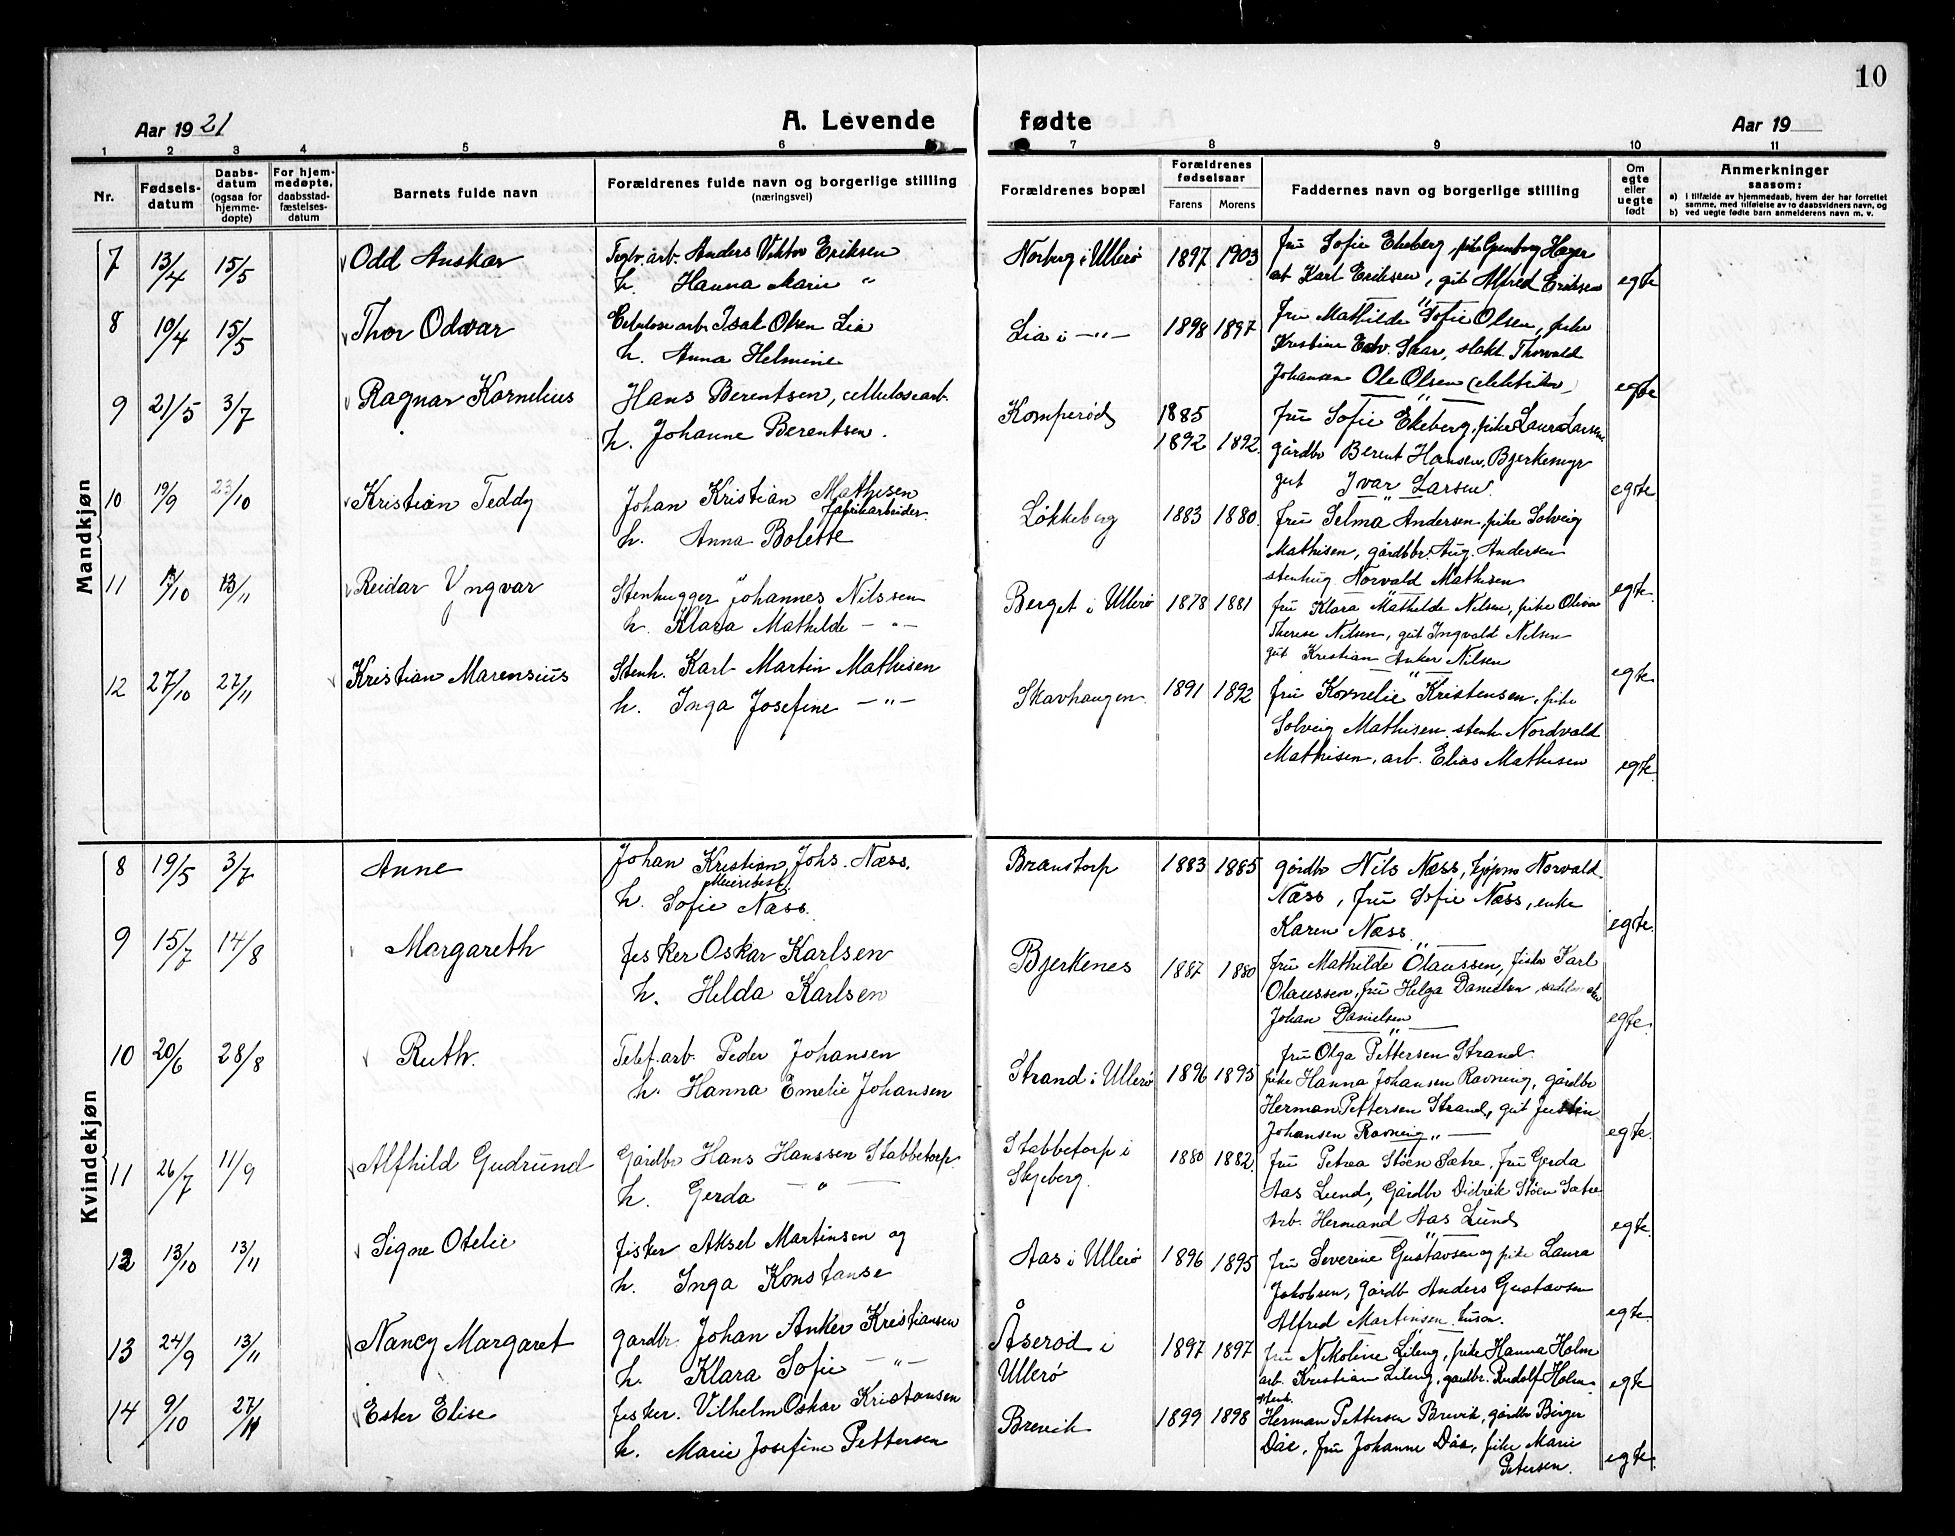 10
Aar 1921
A. Levende
fødte
Aar 19
1 2 3 4 5 6 7 8 9 10 11
Nr.
Fødsels-
datum
Daabs-
datum
(ogsaa for
hjemme-
døpte)
For hjem-
medøpte,
daabsstad-
fæstelses-
datum
Barnets fulde navn
Forældrenes fulde navn og borgerlige stilling
(næringsvei)
Forældrenes bopæl
Forældrenes
fødselsaar
Farens
Morens
Faddernes navn og borgerlige stilling
Om
egte
eller
uegte
født
Anmerkninger
saasom:
a) i tilfælde av hjemmedaab, hvem der har forrettet
samme, med tilføielse av to daabsvidners navn, og
b) ved uegte fødte barn anmelderens navn m. v.
Mandkjøn
7 13/4 15/5 Odd Anskar
Teglv.arb. Anders Viktor Eriksen
h. Hanna Marie "
Norberg i Ullerö 1897 1903
fru Sofie Ekeberg, pike Høyer
arb Karl Eriksen, gut Alfred Eriksen
egte
8 10/4 15/5 Thor Odvar
Celulosearb. Isak Olsen Lia
h. Anna Helmine
Lia i —"— 1898 1897
fru Mathilde Sofie Olsen, pike
Kristine Edv. Skar, slakt. Thorvald
Johansen Ole Olsen (elektriker)
egte
9 21/5 3/7 Ragnar Kornelius
Hans Berentsen, cellulosearb.
h. Johanne Berentsen.
Komperød 1885
1892 1892.
fru Sofie Ekeberg, pike Laura Larsen
gårdbr Berent Hansen, Bjerkemyr
gut Ivar Larsen.
egte
10 19/9 23/10 Kristian Teddy
Johan Kristian Mathisen
fabrikarbeider.
h. Anna Bolette
Løkkeberg 1883 1880.
fru Selma Andersen, pike Solveig
Mathisen, gårdbr. Aug. Andersen
stenhug. Norvald Mathisen
egte.
11 /10 13/11 Reidar Yngvar
Stenhugger Johannes Nilssen
h. Klara Mathilde —"—
Berget i Ullerö 1878 1881
fru Klara Mathilde Nilsen, pike Oliva
Therese Nilsen, gut Ingvald Nilsen
gut Kristian Anker Nilsen
egte.
12 27/10 27/11 Kristian Marensius
Stenh. Karl Martin Mathisen
h. Inga Josefine —"—
Skavhaugen. 1891 1892
fru Kornelie Kristensen, pike
Solveig Mathisen, stenh Nordvald
Mathisen, arb. Elias Mathisen
egte.
Kvindekjøn
8 19/5 3/7 Anne
Johan Kristian Johs. Næss.
Meieribest.
h. Sofie Næss.
Branstorp 1883 1885
gårdbr Nils Næss, Norvald
Næss, fru Sofie Næss, enke
Karen Næss.
egte.
9 15/7 14/8 Margareth
fisker Oskar Karlsen
h. Hilda Karlsen
Bjerkenes 1887 1880
fru Mathilde Olaussen, fisker Karl
Olaussen, fru Helga Danielsen,
Johan Danielsen
egte.
10 20/6 28/8 Ruth.
Telef.arb. Peder Johansen
h. Hanna Emelie Johansen
Strand i Ullerö 1896 1895
fru Olga Pettersen Strand.
pike Hanna Johansen Ravneng, gårdbr
Herman Pettersen Strand, gut Justin
Johansen Ravneng
egte.
11 26/7 11/9 Alfhild Gudrund
Gårdbr Hans Hanssen Stabbetorp.
h. Gerda — " —
Stabbetorp i
Skjeberg. 1880 1882.
fru Petrea Støen Sætre, fru Gerda
Aas Lund, Gårdbr Didrik Støen Sætre
Arb. Hermand Aas Lund
egte.
12 13/10 13/11 Signe Otelie
fisker Aksel Martinsen og
h. Inga Konstanse
Aas i Ullerö 1896 1895
fru Severine Gustavsen og pike Laura
Jakobsen, gårdb. Anders Gustavsen
Alfred Martinsen
egte.
13 24/9 13/11 Nancy Margaret
gårdbr. Johan Anker Kristiansen
h. Klara Sofie —"—
Åserød i
Ullerö 1897 1897
fru Nikoline Lileng, pike Hanna Holm
arb. Kristian Lileng, gårdbr. Rudolf Holm
egte
14 9/10 27/11 Ester Elise
fisker. Vilhelm Oskar Kristansen
h. Marie Josefine Pettersen
Brevik 1899 1898
Herman Pettersen Brevik, gårdbr Birger
Dåe, fru Johanne Dåe, pike Marie
Petersen.
egte.